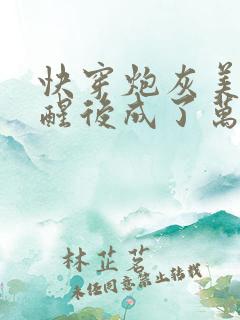 快穿炮灰美
醒後成了萬
林芷茗
未經同意禁止轉載